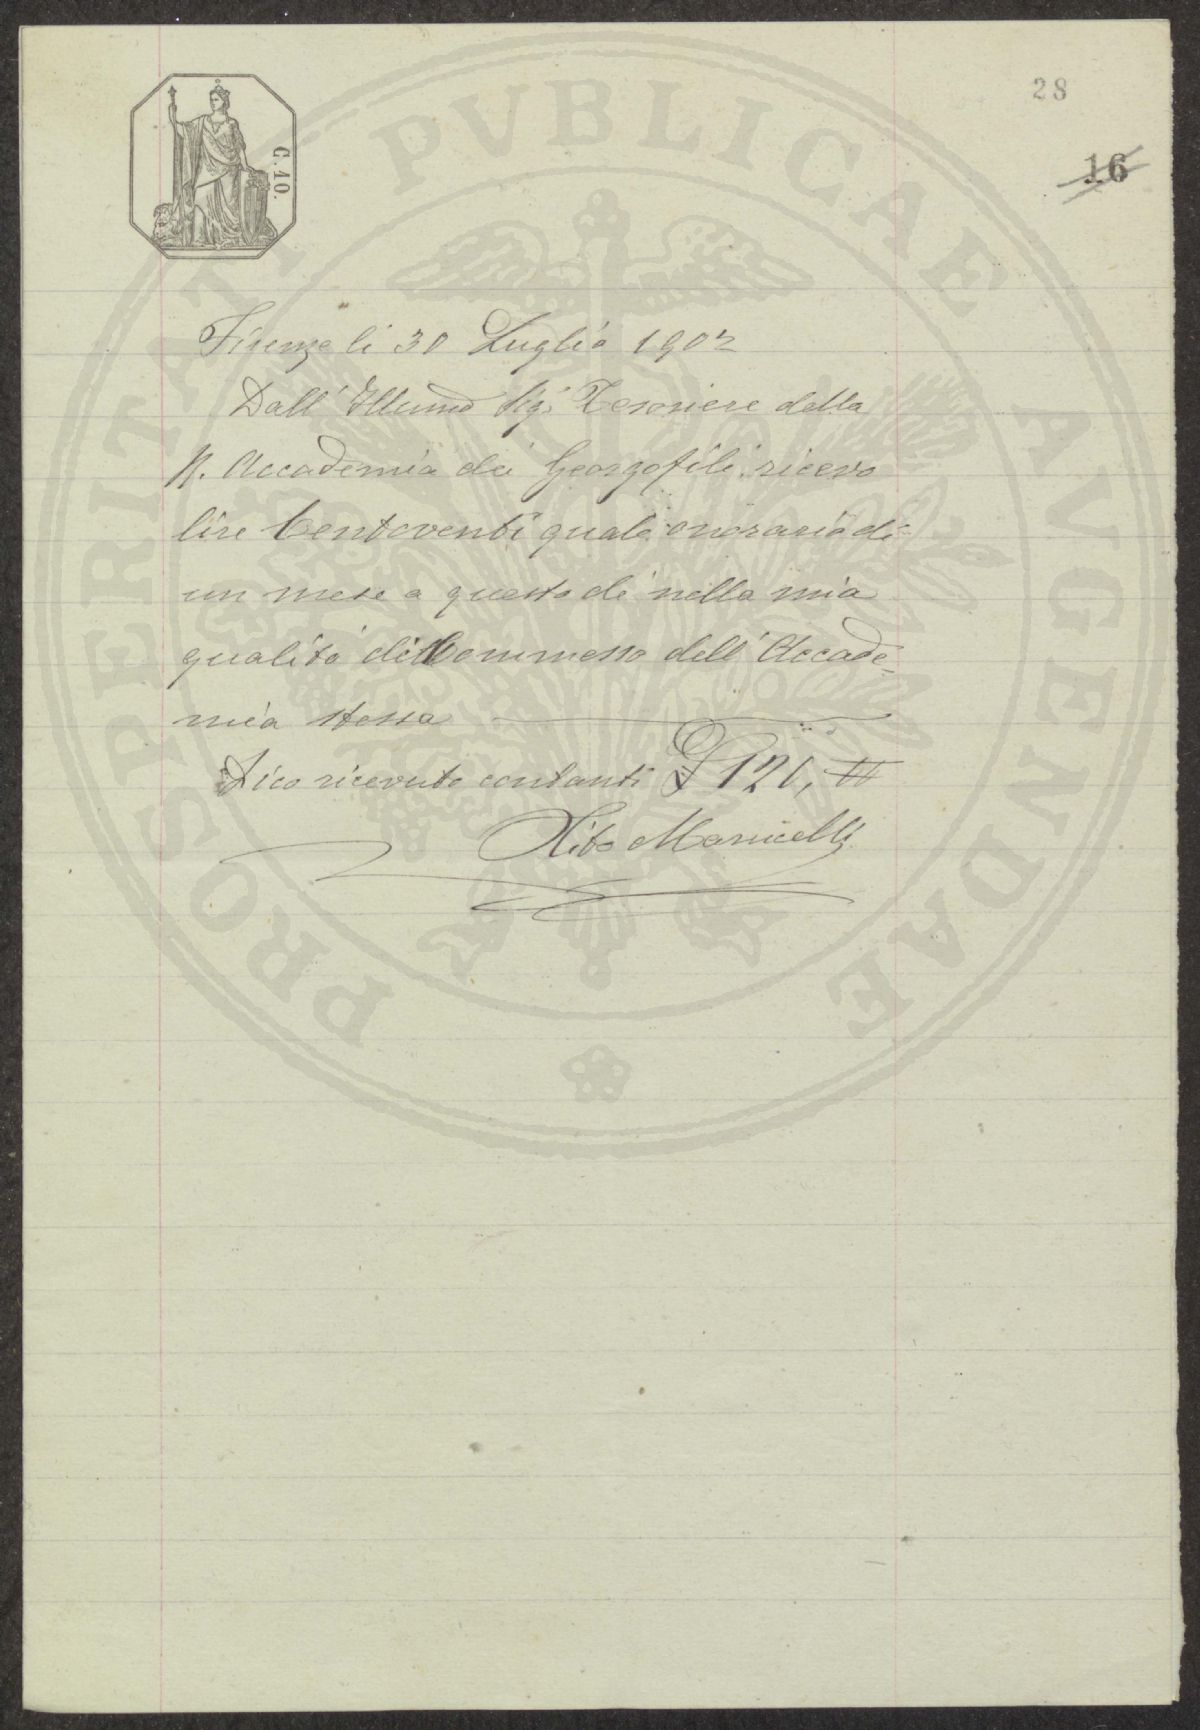 28
16
C. 10.
PROSPERITATI PVBLICAE AVGENDAE
Firenze li 30 Luglio 1902
Dall' Illumo Sigr Tesoriere della
R. Accademia dei Georgofili ricevo
lire Centoventi quale onorario di
un mese a questo dì nella mia
qualità di Commesso dell' Accade-
mia stessa
Dico ricevuto contanti £ 120,